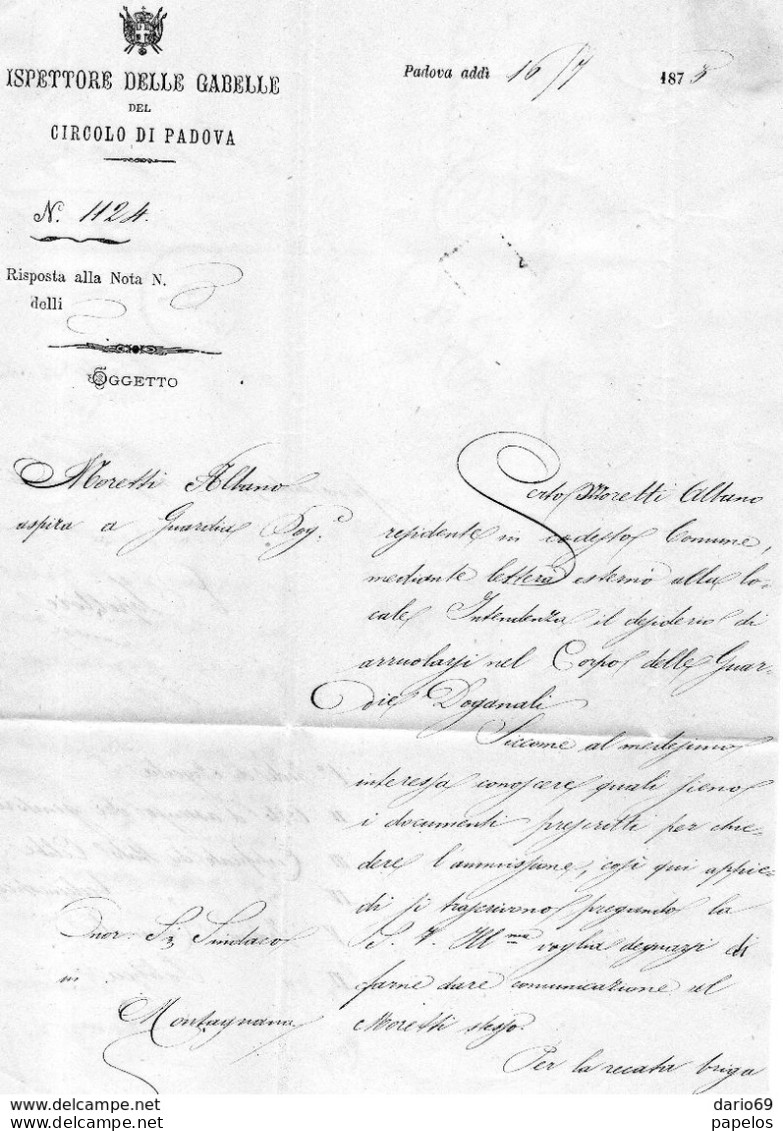 ISPETTORE DELLE GABELLE
DEL
CIRCOLO DI PADOVA
Padova addì 16/7 1873
N. 1124.
Risposta alla Nota N.
delli
OGGETTO
Moretti Albano
aspira a Guardia Dog.e
Certo Moretti Albano
residente in codesto Comune,
mediante lettera esternò alla lo-
cale Intendenza il desiderio di
arruolarsi nel Corpo delle Guar-
die Doganali
Siccome al medesimo
interessa conoscere quali sieno
i documenti prescritti per chie-
dere l'ammissione, così qui appie-
di si trascrivono pregando la
S. V. Ill.ma voglia degnarsi di
farne dare comunicazione al
Moretti stesso.
Per la recata briga
Onor. Sig Sindaco
in
Montagnana
dario69
papelos